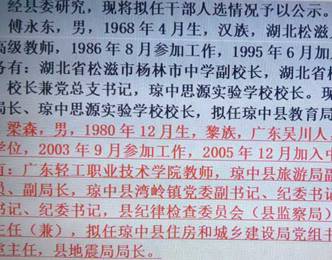 经县委研究，现将拟任干部人选情况予以公示。
傅永东，男，1968 年 4 月生，汉族，湖北
高级教师，1986 年 8 月参加工作，1995 年 6 月加
务有：湖北省松滋市杨林市中学副校长，湖北省
校长兼党总支书记，琼中思源实验学校校长。现
局长、琼中思源实验学校校长，拟任琼中县教育局
梁森，男，1980 年 12 月生，黎族，广东吴川人
学位，2003 年 9 月参加工作，2005 年 12 月加入中
有：广东轻工职业技术学院教师，琼中县旅游局副
员、副局长，琼中县湾岭镇党委副书记、纪委书
书记、纪委书记，县纪律检查委员会（县监察局）
主任（兼），拟任琼中县住房和城乡建设局党组书
室主任，县地震局局长。